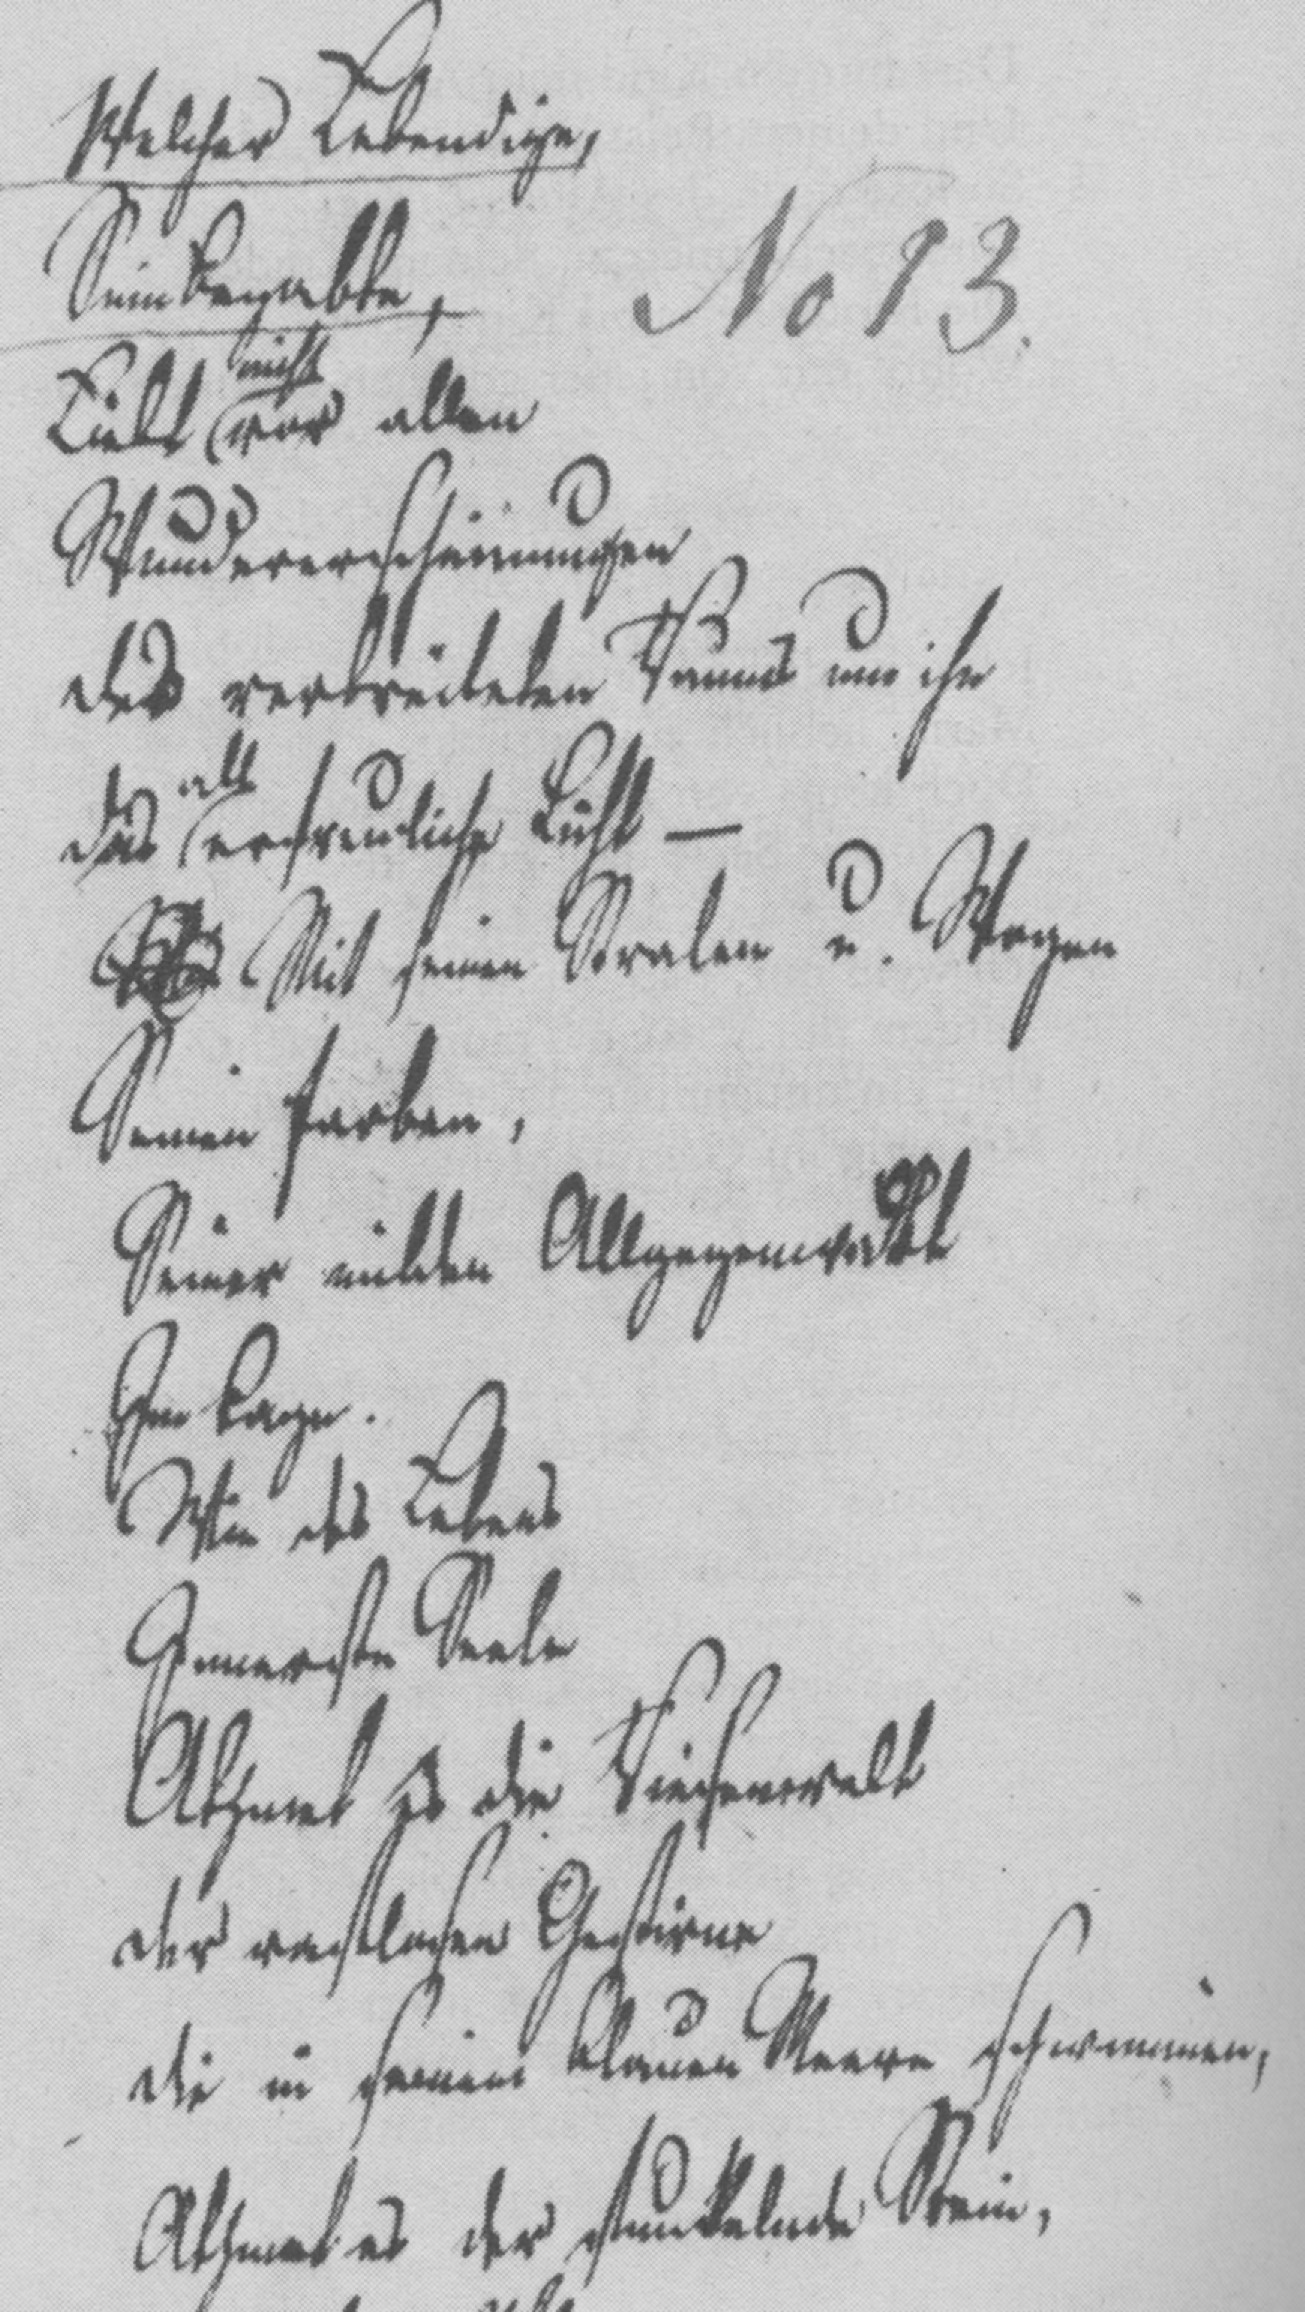 Welcher Lebendige,
Sinnbegabte,
No 13.
nicht
Liebt vor allen
Wundererscheinungen
des verbreiteten Raums um ihn
all
das erfreuliche Licht —
Mit seinen Stralen u. Wogen
Seinen Farben,
Seiner milden Allgegenwart
Im Tage.
Wie des Lebens
Innerste Seele
Athmet es die Riesenwelt
der rastlosen Gestirne
die in seinem blauen Meere schwimmen,
Athmet es der funkelnde Stein,